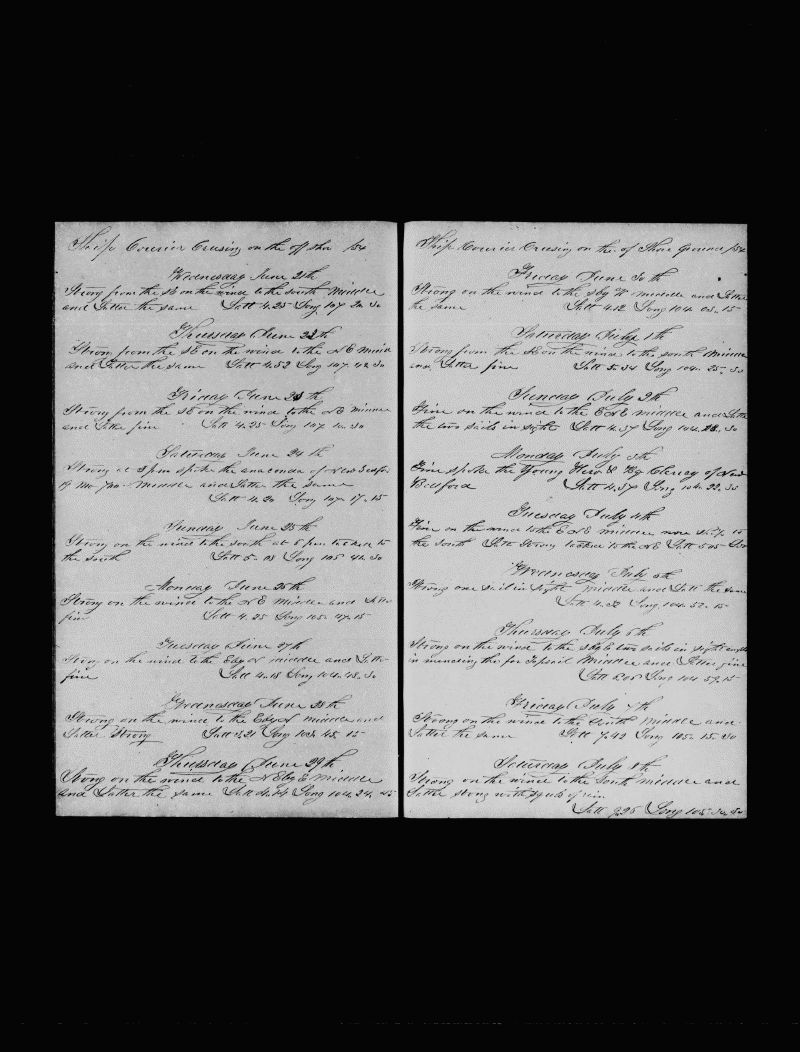 Ship Courier Crusing on the off shor /54
Wednesday June 21th
Strong from the SE on the wind to the south Middle
and Latter the same Latt 4.25 Long 107 20 30
Thursday June 22th
Strong from the SE on the wind to the NE Midd
and Latter the same Latt 4.52 Long 107 42 30
Friday June 23th
Strong from the SE on the wind to the NE Middle
and Latter fine Latt 4.25 Long 107
Saturday June 24th
Strong at 3 pm spoke the anaconda of New Bedford
Middle and Latter the same
Latt 4.20 Long 107.17.15
Sunday June 25th
Strong on the wind to the south at 5 pm tacked to
the south Latt 5.08 Long 105 42.30
Monday June 26th
Strong on the wind to the NE Middle and Latter
fine Latt 4.25 Long 105.47.15
Tuesday June 27th
Strong on the wind to the EbyN middle and Latter
fine Latt 4.18 Long 104.48.30
Wednesday June 28th
Strong on the wind to the EbyN Middle and
Latter Strong Latt 3.21 Long 103 45 15
Thursday June 29th
Strong on the wind to the NEbyE Middle
and Latter the same Latt 4.14 Long 104.24.45
Ship Courier Crusing on the of Shore Ground /54
Friday June 30th
Strong on the wind to the middle and Latter
the same Latt 4.12 Long 104.03.15
Saturday July 1th
Strong from the SE on the wind to the south Middle
and Latter fine Latt 5.34 Long 104.25.30
Sunday July 2th
Fine on the wind to the ENE middle and Latter
the two sails in sight Latt 4.57 Long 104.22.30
Monday July 3th
Fine spoke the Young Hero & Big Chency of New
Bedford Latt 4.37 Long 104.22.30
Tuesday July 4th
Fine on the wind to the ENE middle
the south Latt Strong tacked to the NE Latt 5.05
Wednesday July 5th
Strong one sail in sight middle and Latt the same
Latt 4.32 Long 104.52.15
Thursday July 6th
Strong on the wind to the SbyE two sails in sight
in mending the for Topsail Middle and Latter fine
Long 104 59.15
Friday July 7th
Strong on the wind to the South Middle and
Latter the same Latt 7.42 Long 105.15.30
Saturday July 8th
Strong on the wind to the South middle and
Latter strong with squls of rain
Latt 9.26 Long 105.34.30